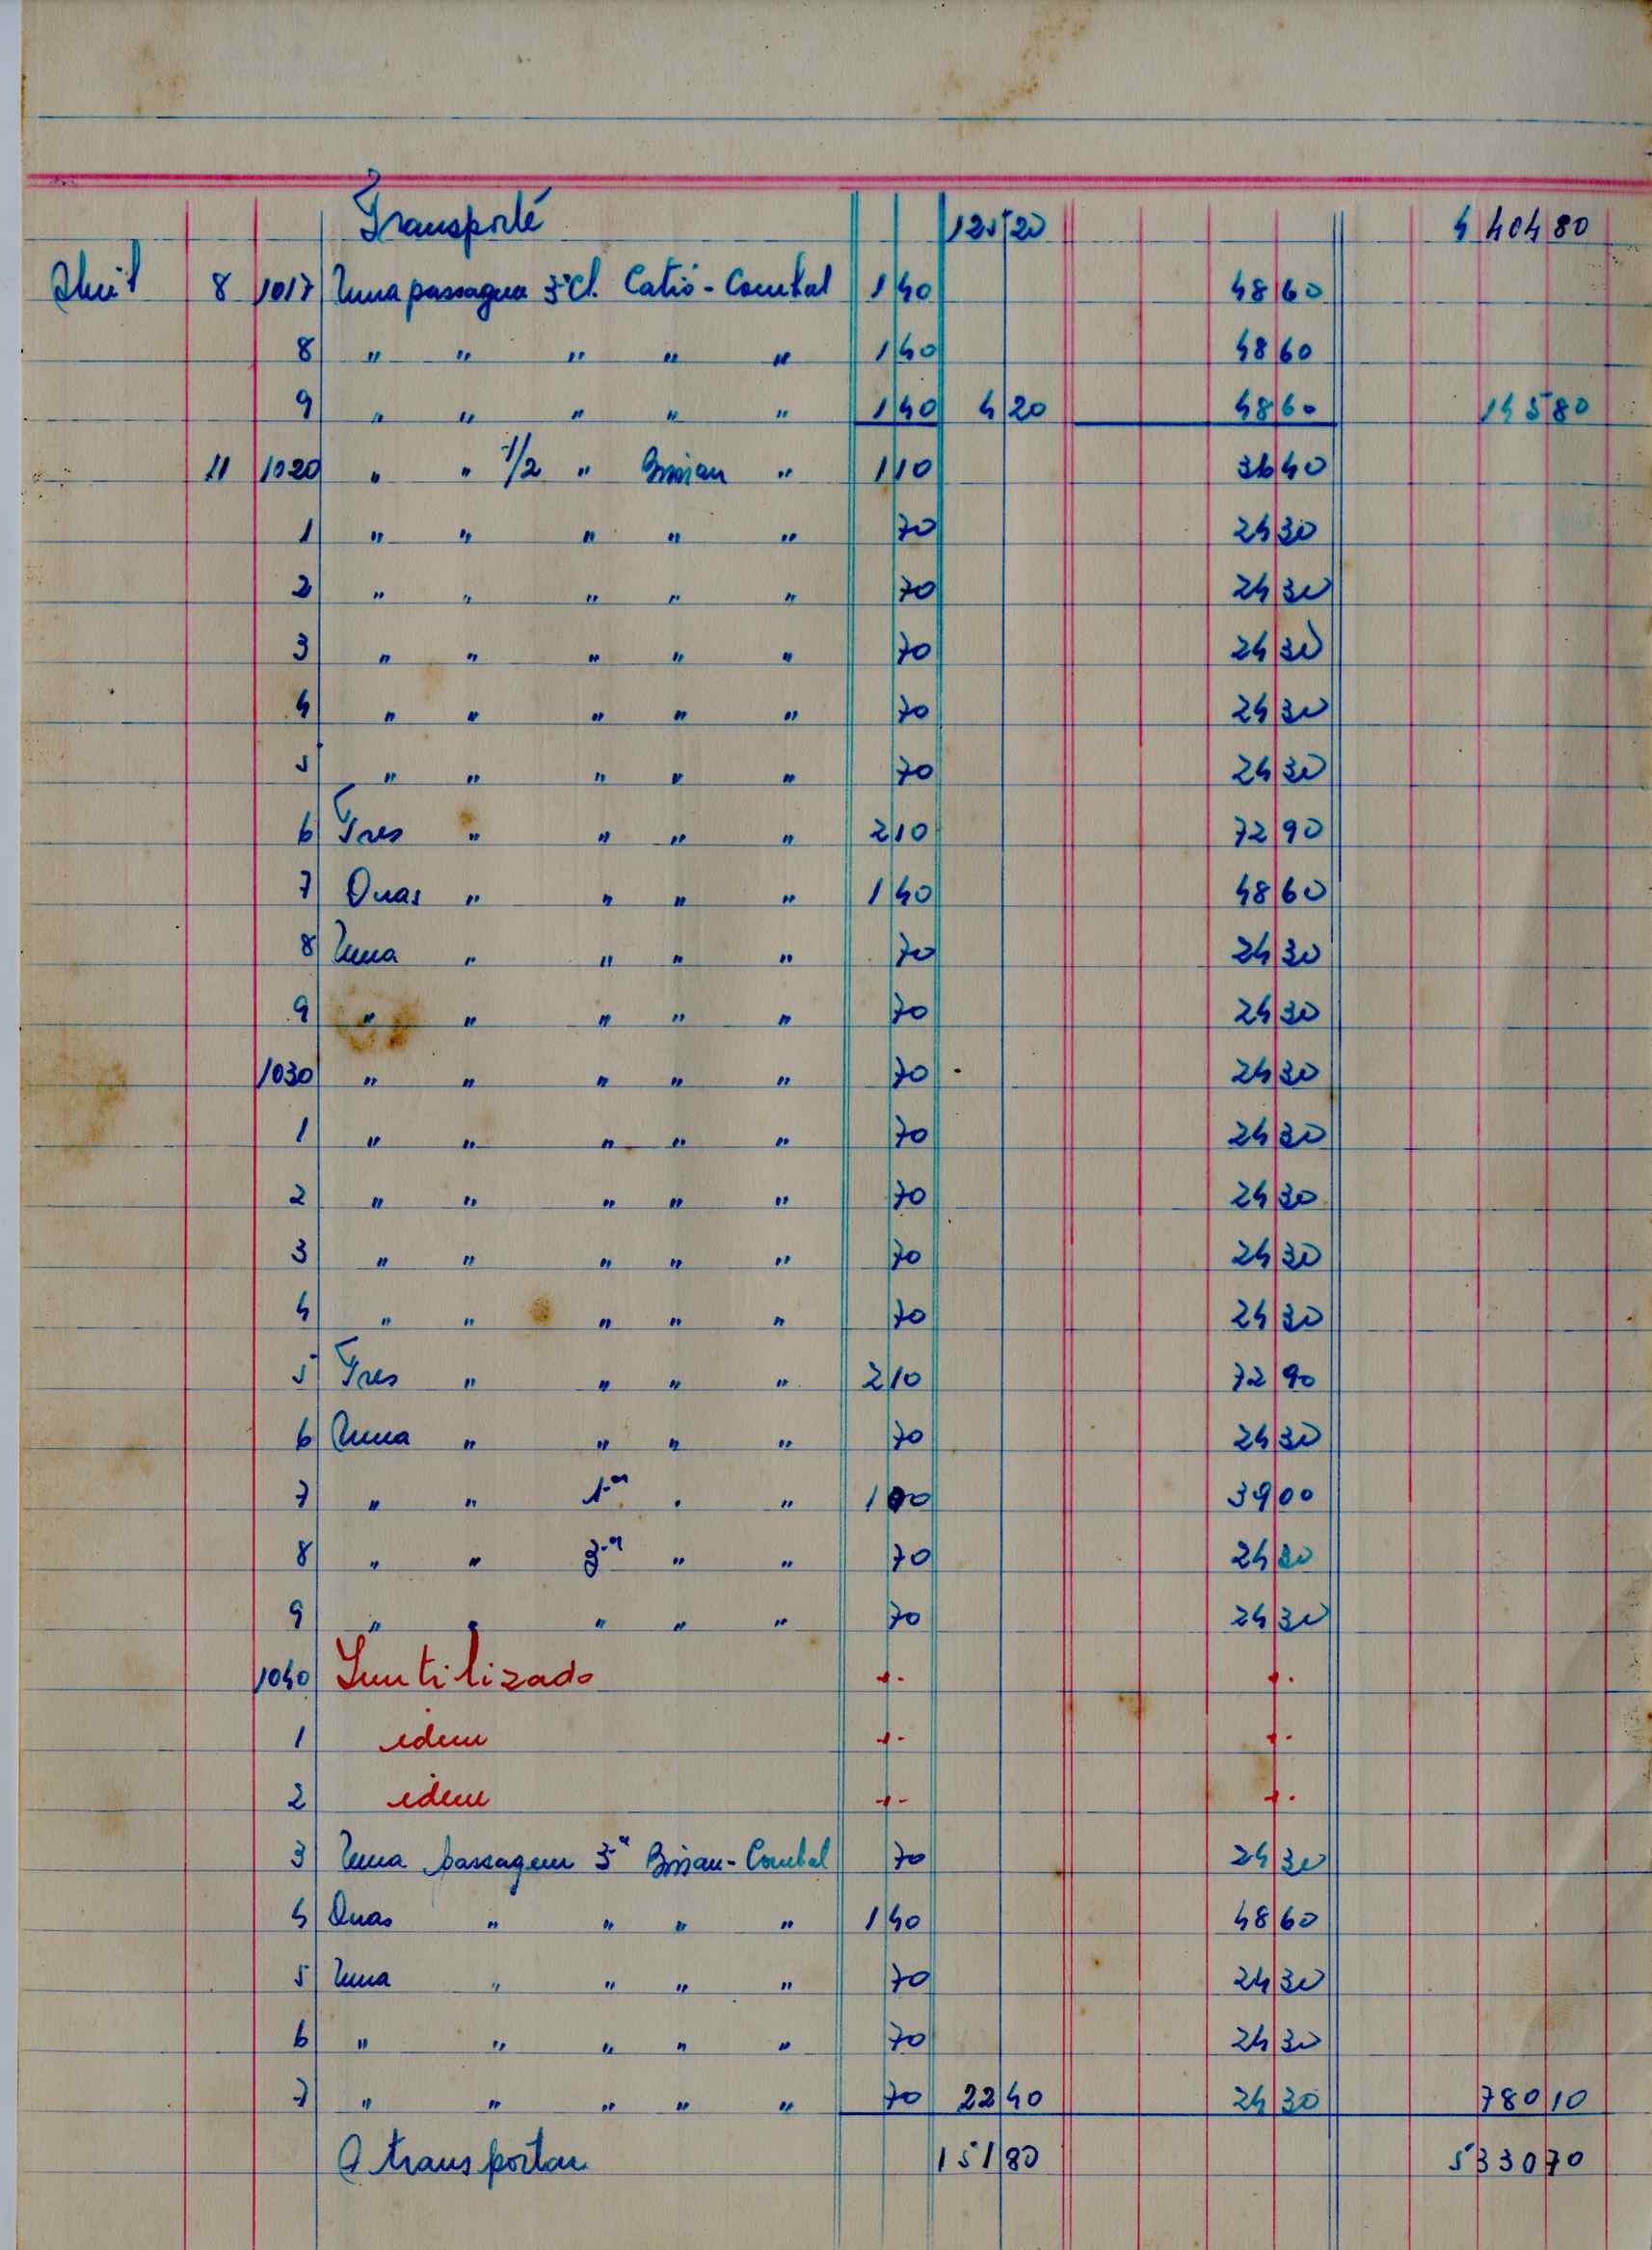 Transporte 125 20 4 404 80
Abril 8 1017 Uma passagem 3ª Cl. Catió - Combal 1 40 48 60
8 " " " " " 1 40 48 60
9 " " " " " 1 40 4 20 48 60 145 80
11 1020 " " 1/2 " Bissau " 1 10 36 40
1 " " " " " 70 24 30
2 " " " " " 70 24 30
3 " " " " " 70 24 30
4 " " " " " 70 24 30
5 " " " " " 70 24 30
6 Tres " " " " 2 10 72 90
7 Duas " " " " 1 40 48 60
8 Uma " " " " 70 24 30
9 " " " " " 70 24 30
1030 " " " " " 70 24 30
1 " " " " " 70 24 30
2 " " " " " 70 24 30
3 " " " " " 70 24 30
4 " " " " " 70 24 30
5 Tres " " " " 2 10 72 90
6 Uma " " " " 70 24 30
7 " " 1.ª " " 1 00 39 00
8 " " 3.ª " " 70 24 30
9 " " " " " 70 24 30
1040 Inutilizado
1 idem
2 idem
3 Uma passagem 3ª Bissau - Combal 70 24 30
4 Duas " " " " 1 40 48 60
5 Uma " " " " 70 24 30
6 " " " " " 70 24 30
7 " " " " " 70 22 40 24 30 780 10
A transportar 151 80 5 330 70